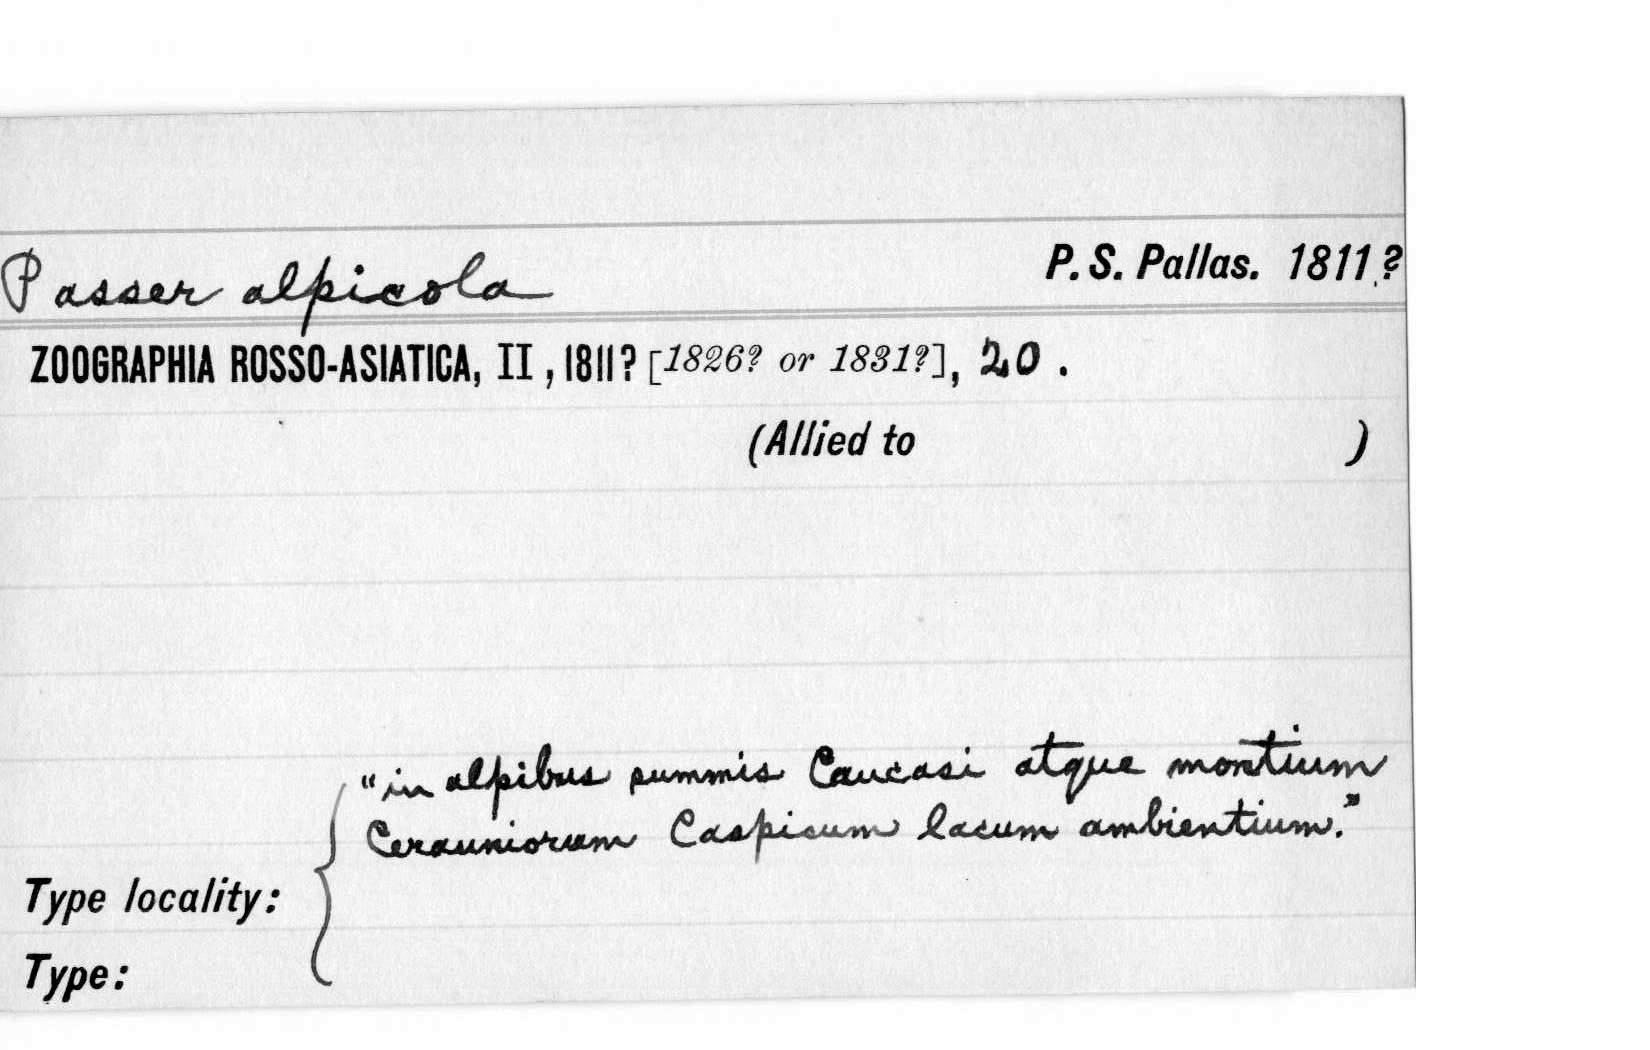 Passer alpicola P. S. Pallas. 1811?
ZOOGRAPHIA ROSSO-ASIATICA, II, 1811? [1826? or 1831?], 20.
(Allied to )
"in alpibus summis Caucasi atque montium
Cerauniorum Caspicum lacum ambientium."
Type locality:
Type: